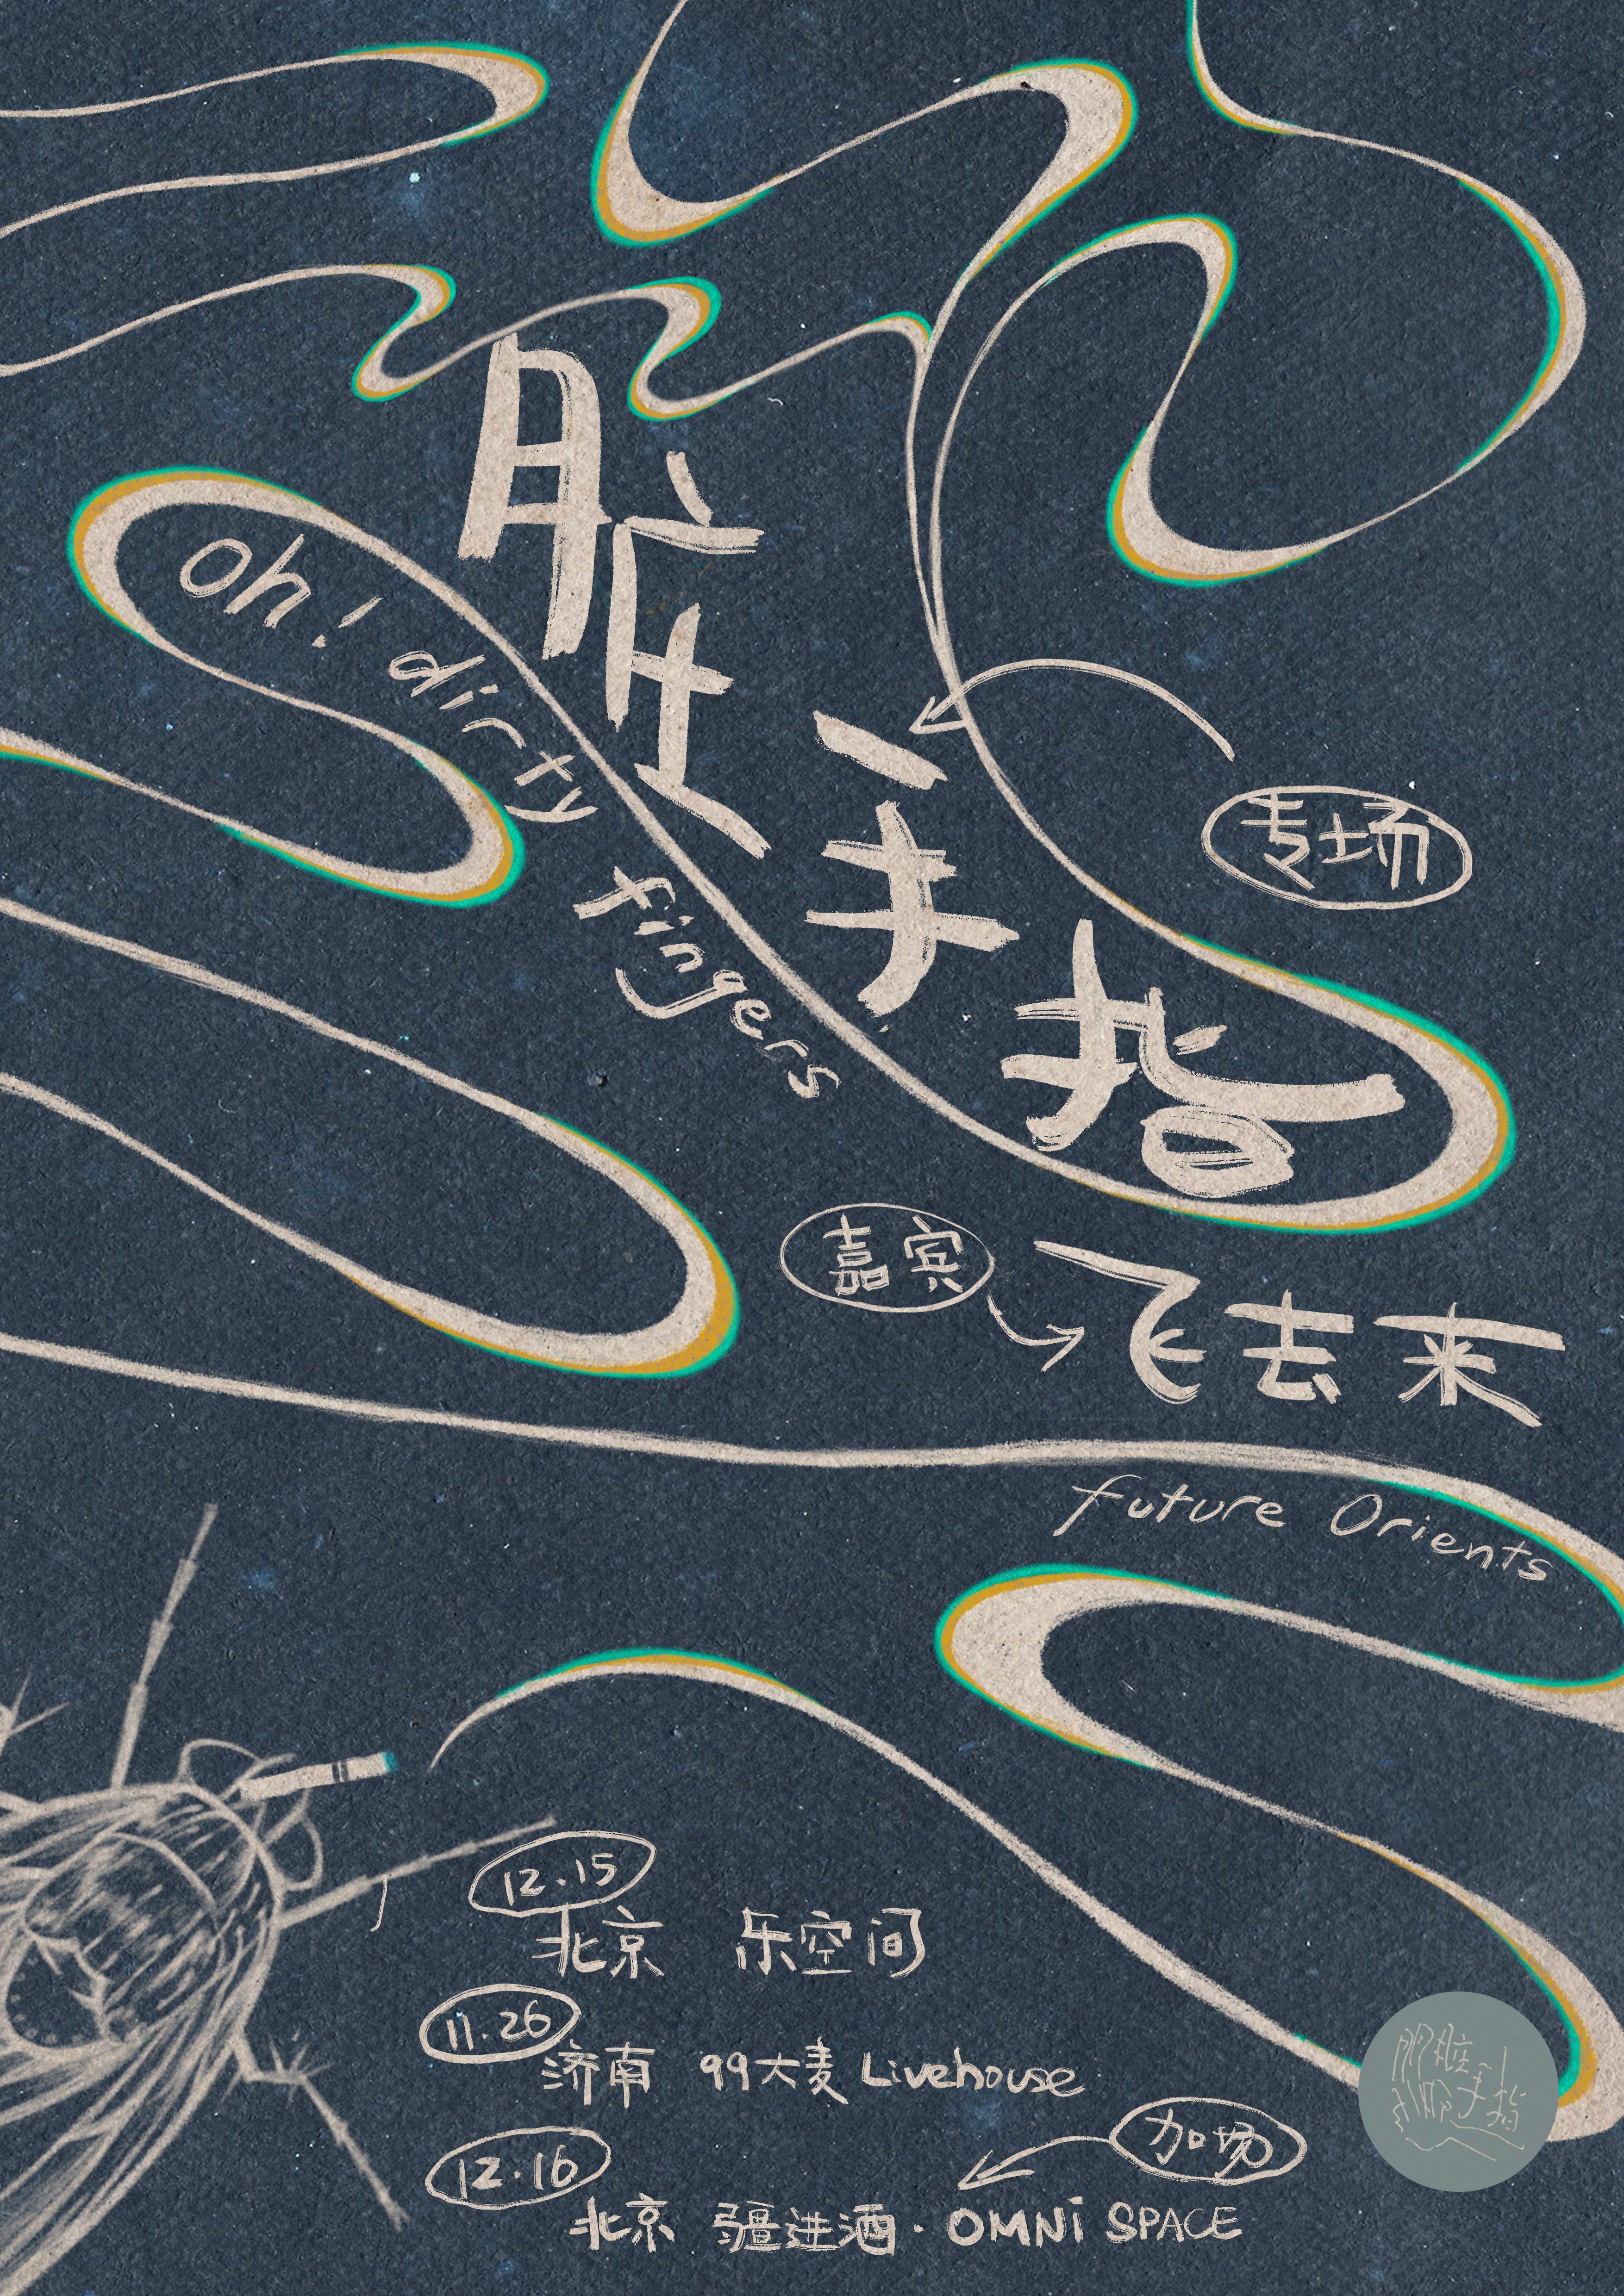 脏手指
oh! dirty fingers
专场
嘉宾
飞去来
future Orients
12.15
北京 乐空间
11.26
济南 99大麦 Livehouse
12.16
加场
北京 疆进酒·OMNi SPACE
脏手指